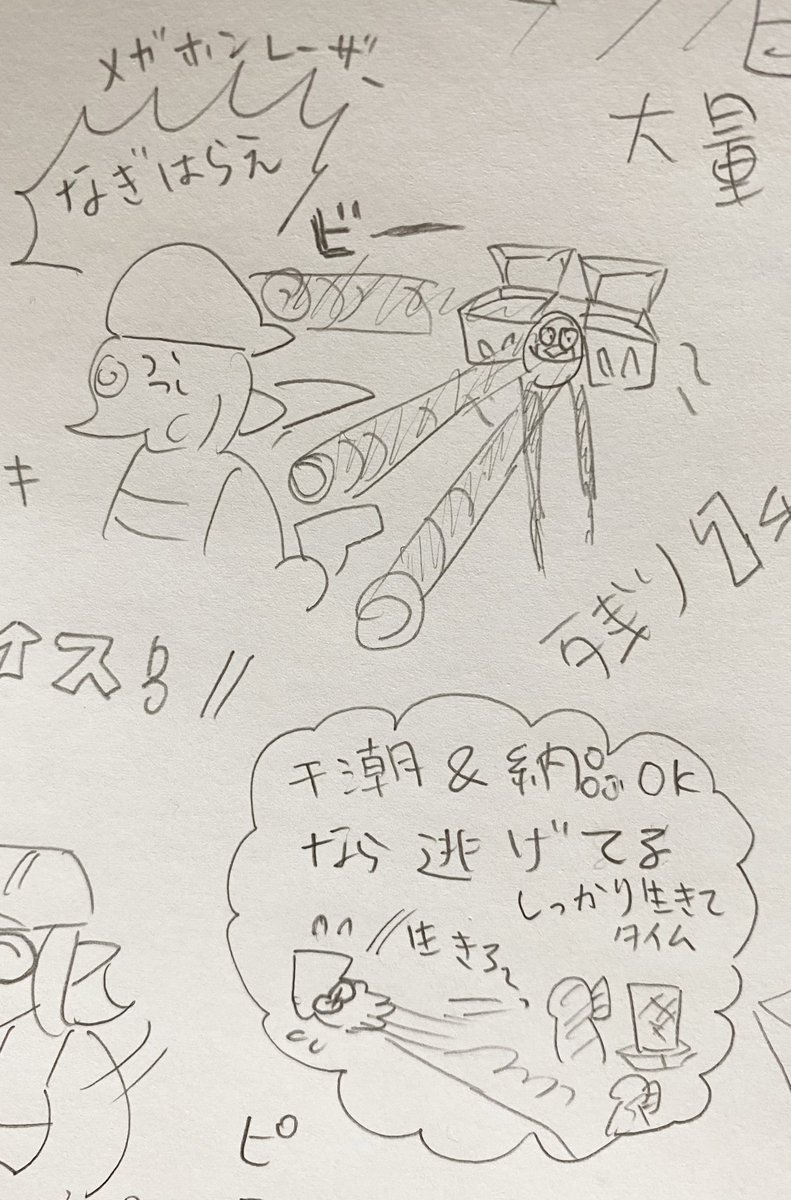 メガホンレーザー
なぎはらえ
ビー
大量
キ
残り
イスる//
干潮&納品OK
なら逃げてる
しっかり生きて
タイム
生きろ〜
ピ